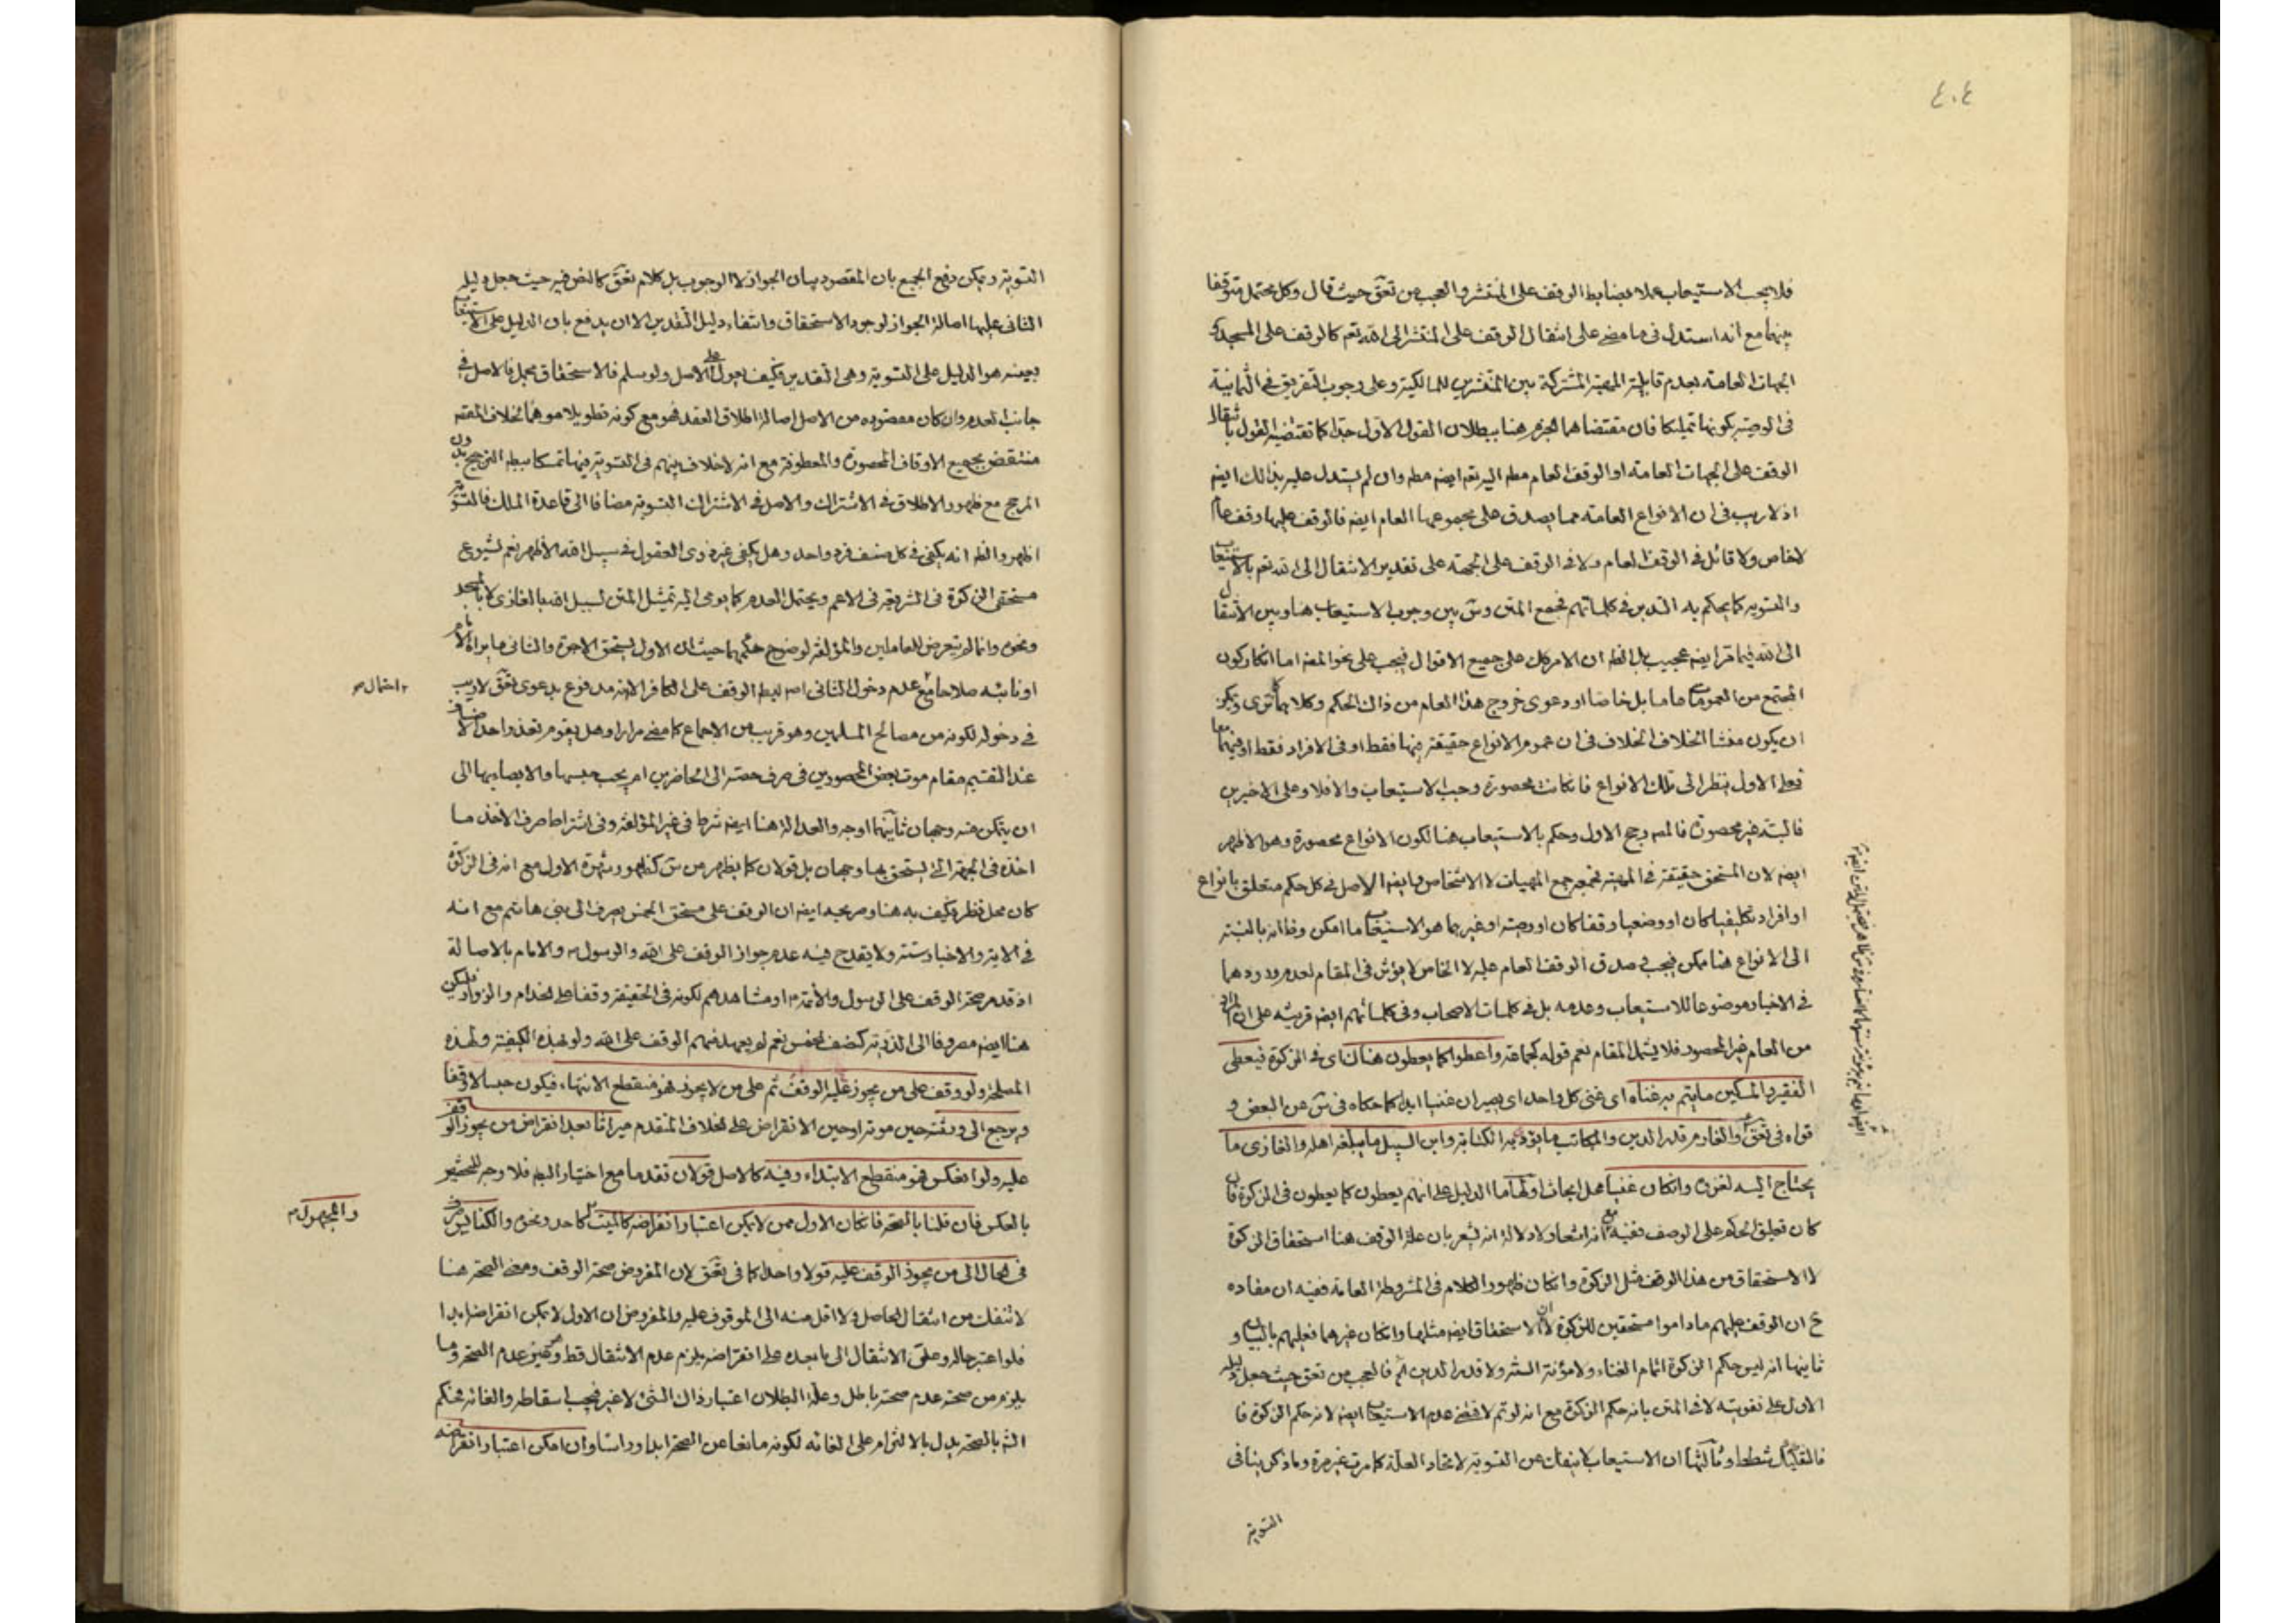 ٤٠٤
فلا يجب الاستيعاب عملا بضابط الوقف على المنتشر والعجب من تعق حيث قال وكل محتمل متوقفا
بينهما مع انه استدل في ما مضى على انتقال الوقف على المنتشر الى الله تعم كالوقف على المسجد و
الجهات العامة بعدم قابلية المشتركة بين المنتشرين للمالكية وعلى وجوب التفريق في الثمانية
في الوصية بكونها تمليكا فان مقتضاهما الجزم هنا ببطلان القول الاول جدا كما تقتضيه القول بانتقال
الوقف على الجهات العامة او الوقف العام مطه اليه تعم ايضه مطه وان لم يستدل عليه بذالك ايضه
اذ لا ريب في ان الانواع العامة مما يصدق على مجموعها العام ايضه فالوقف عليها وقف عام
لا خاص ولا قائل في الوقف العام ولا في الوقف على الجهة على تقدير الانتقال الى الله تعم بالاستيعاب
والتسوية كما يحكم به التدبر في كلماتهم فجمع المتن وس بين وجوب الاستيعاب هنا وبين الانتقال
الى الله فيما مر ايضه عجيب بل الظه ان الامر كك على جميع الاقوال فيجب على نحو المضه اما انكار كون
المجتمع من العمومات عاما بل خاصا او دعوى خروج هذا العام من ذالك الحكم وكلاهما كما ترى ويمكن
ان يكون منشا الخلاف الخلاف في ان عموم الانواع حقيقة فيها فقط او في الافراد فقط او فيهما معا
فعلى الاول ينظر الى تلك الانواع فان كانت محصورة وجب الاستيعاب والا فلا وعلى الاخيرين
فالبتة غير محصورة فالمصه رجح الاول وحكم بالاستيعاب هنا لكون الانواع محصورة وهو الاظهر
ايضه لان المستحق حقيقة في المهية فجمع المهيات لا الاشخاص وايضه الاصل في كل حكم متعلق بانواع
او افراد تكليفيا كان او وضعيا وقفا كان او وصية او غيرهما هو الاستيعاب ما امكن وظه انه بالنسبة
الى الانواع هنا ممكن فيجب وصدق الوقف العام عليه لا الخاص لا يؤثر في المقام لعدم ورودهما
في الاخبار موضوعا للاستيعاب وعدمه بل في كلمات الاصحاب وفي كلماتهم ايضه قرينة على ان المراد
من العام غير المحصور فلا يشمل المقام نعم قوله كجماعة واعطوا كما يعطون هناك اى في الزكوة فيعطى
الفقير والمسكين ما يتم به غناه اى غنى كل واحد اى يصير ان غنيا ابدا كما حكاه في س عن البعض و
قواه في تعق والغارم قدر الدين والمكاتب ما يؤدى به الكتابة وابن السبيل ما يبلغه اهله والغازى ما
يحتاج اليه لغزوه وان كان غنيا محل ابحاث اولها ما الدليل على انهم يعطون كما يعطون في الزكوة فان
كان تعليق الحكم على الوصف ففيه مع انه اشعار لا دلالة انه يشعر بان علة الوقف هنا استحقاق الزكوة
لا الاستحقاق من هذا الوقف مثل الزكوة وان كان ظهور الكلام في المشروطة العامة ففيه ان مفاده
ح ان الوقف عليهم ما داموا مستحقين للزكوة لا ان الاستحقاق ايضه مثلها وان كان غيرهما فعليهم بالبيان و
ثانيها انه ليس حكم الزكوة اتمام الغناء ولا مؤنة السنة ولا قدر الدين اه فالعجب من تعق حيث جعل دليله
الاول على تقويته لا في المتن بانه حكم الزكوة مع انه لو تم لاقتضى عدم الاستيعاب ايضه لانه حكم الزكوة فا
فالتفكيك شطط وثالثها ان الاستيعاب لا ينفك عن التسوية لاتحاد العلة كما مر غير مرة وما ذكر ينافى
التسوية
التسوية ويمكن دفع الجميع بان المقصود بيان الجواز لا الوجوب بل كلام تعق كالنص فيه حيث جعل دليله
الثاني عليها اصالة الجواز لوجود الاستحقاق وانتفاء دليل التقدير الا ان يدفع بان الدليل على الاستيعاب
بعينه هو الدليل على التسوية وهى التقدير فكيف يعول على الاصل ولو سلم فالاستحقاق مجمل فالاصل في
جانب العدم وان كان مقصوده من الاصل اصالة اطلاق العقد فهو مع كونه تطويلا موهما لخلاف المقصه
منتقض بجميع الاوقاف المحصورة والمعطوفة مع انه لا خلاف بينهم في التسوية فيها تمسكا بعدم الترجيح بدون
المرجح مع ظهور الاطلاق في الاشتراك والاصل في الاشتراك التسوية مضافا الى قاعدة الملك فالتسوية
اظهر والظه انه يكفي في كل صنف فرد واحد وهل يكفي غير ذوى العقول في سبيل الله الاظهر نعم لشيوع
مستحقى الزكوة في الشريعة في الاعم ويحتمل العدم كما يومى اليه تمثيل المتن لسبيل الله بالغازى لا بالمسجد
ونحوه وانما لم يتعرض للعاملين والمؤلفة لوضوح حكمهما حيث ان الاول يستحق الاجرة والثانى ما يراه الامام
او نائبه صلاحا مع عدم دخول الثانى لضابط الوقف على الكافر الا انه مدفوع بدعوى تعق لا ريب
احتمال صح
في دخوله لكونه من مصالح المسلمين وهو قريب من الاجماع كما مضى مرارا وهل يقوم تعذر واحد الاصناف
عند التقسيم مقام موت بعض المحصورين في صرف حصته الى الحاضرين ام يجب حبسها والايصاء بها الى
ان يتمكن منه وجهان ثانيهما اوجه والعدالة هنا ايضه شرط في غير المؤلفة وفي اشتراط صرف الاخذ ما
اخذه في الجهة التى يستحق بها وجهان بل قولان كما يظهر من س كظهور شهرة الاول مع انه في الزكوة
كان محل نظر فكيف به هنا وصرح جد ايضه ان الوقف على مستحق الخمس يصرف الى بنى هاشم مع انه
في الاية والاخبار ستة ولا يقدح فيه عدم جواز الوقف على الله والرسول والامام بالاصالة
اذ قد مر صحة الوقف على الرسول والائمة او مشاهدهم لكونه في الحقيقة وقفا على الخدام والزوار فليكن
هنا ايضه مصروفا الى الذرية كنصف الخمس نعم لم يعهد منهم الوقف على الله ولو بهذه الكيفية ولهذه
المصلحة ولو وقف على من يجوز عليه الوقف ثم على من لا يجوز فهو منقطع الانتهاء فيكون حبسا لا وقفا
ويرجع الى ورثته حين موته او حين الانقراض على الخلاف المتقدم ميراثا بعد انقراض من يجوز الوقف
عليه ولو انعكس فهو منقطع الابتداء وفيه كالاصل قولان تقدما مع اختيار البطه فلا وجه للتحشير
بالعكس فان قلنا بالصحة فان كان الاول ممن لا يمكن اعتبار انقراضه كالميت كاحد ونحوه والكنائس صرف
والمجهول
في الحال الى من يجوز الوقف عليه قولا واحدا كما في تعق لان المفروض صحة الوقف ومعنى الصحة هنا
لا تنفك من انتقال الحاصل ولا اقل منه الى الموقوف عليه والمفروض ان الاول لا يمكن انقراضه ابدا
فلو اعتبر حاله وعلق الانتقال الى ما بعده على انقراضه يلزم عدم الانتقال قط وهو عين عدم الصحة وما
يلزم من صحته عدم صحته باطل وعلة البطلان اعتبار ذاك الشئ لا غير فيجب اسقاطه والغائه فحكم
الشه بالصحة يدل بالالتزام على الغائه لكونه مانعا عن الصحة ابدا وراسا وان امكن اعتبار انقراضه